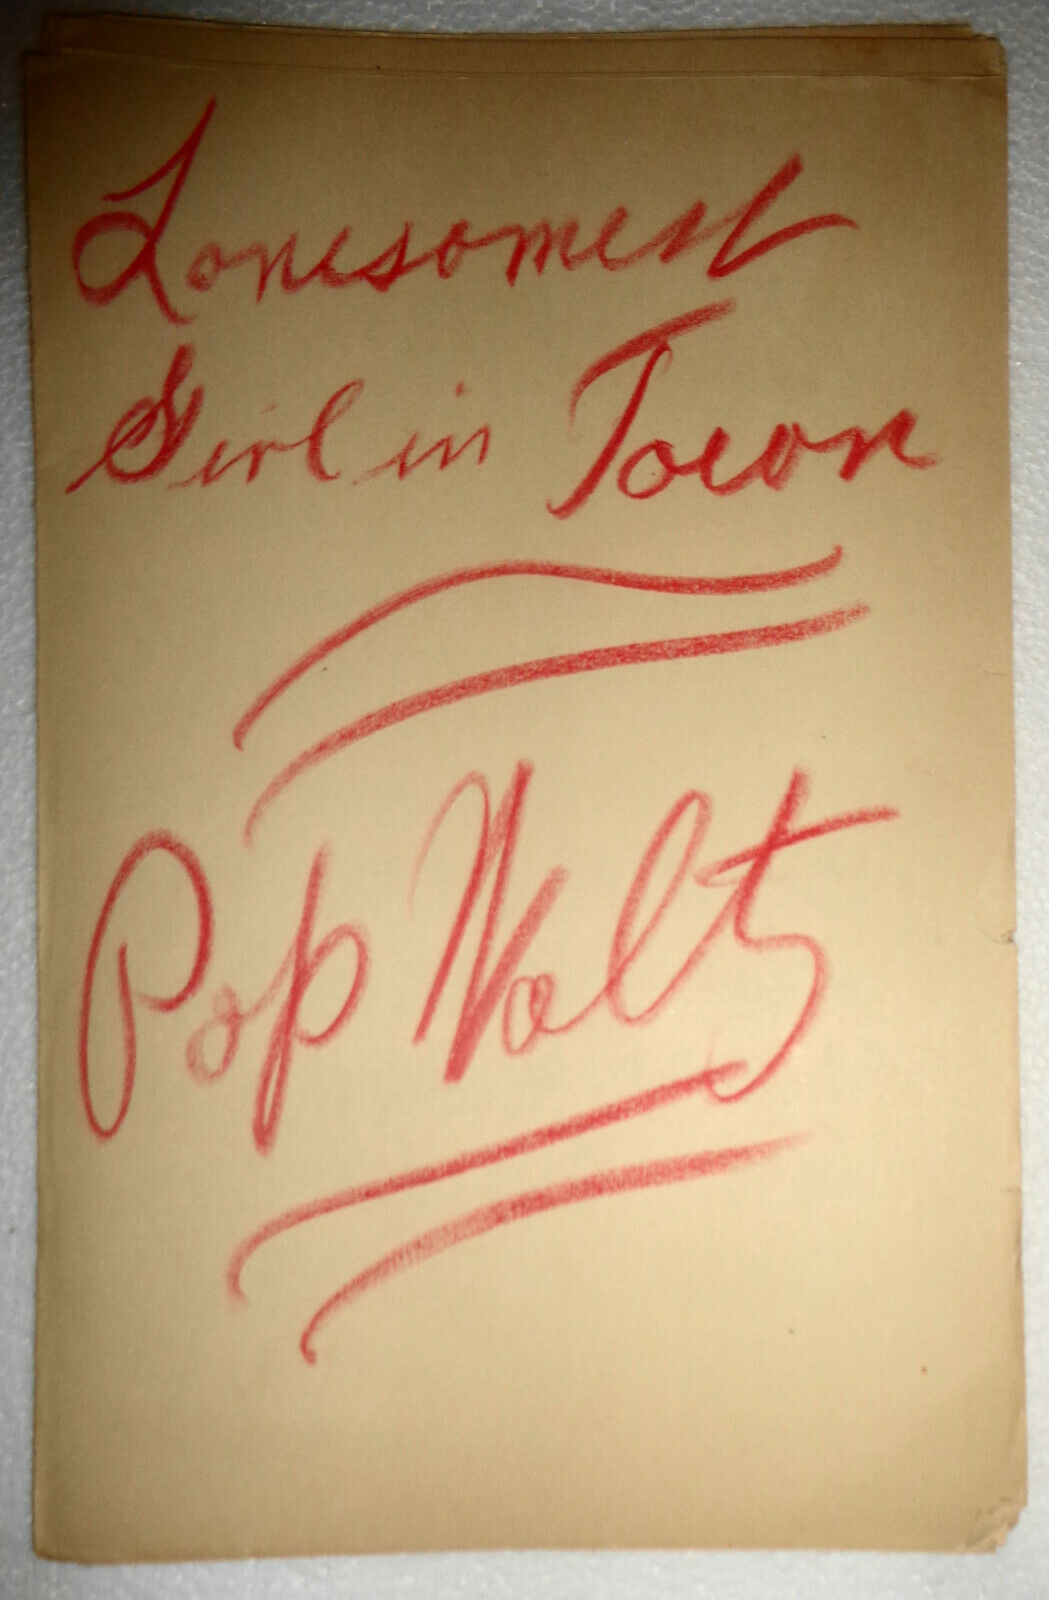 Lonesomest
Girl in Town
Pop Waltz